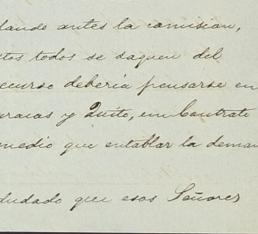 dando antes la comision,
stos todos se saquen del
ecurso debería pensarse en
aracas y Quito, un Contrato
medio que entablar la deman
dudado que esos Señores